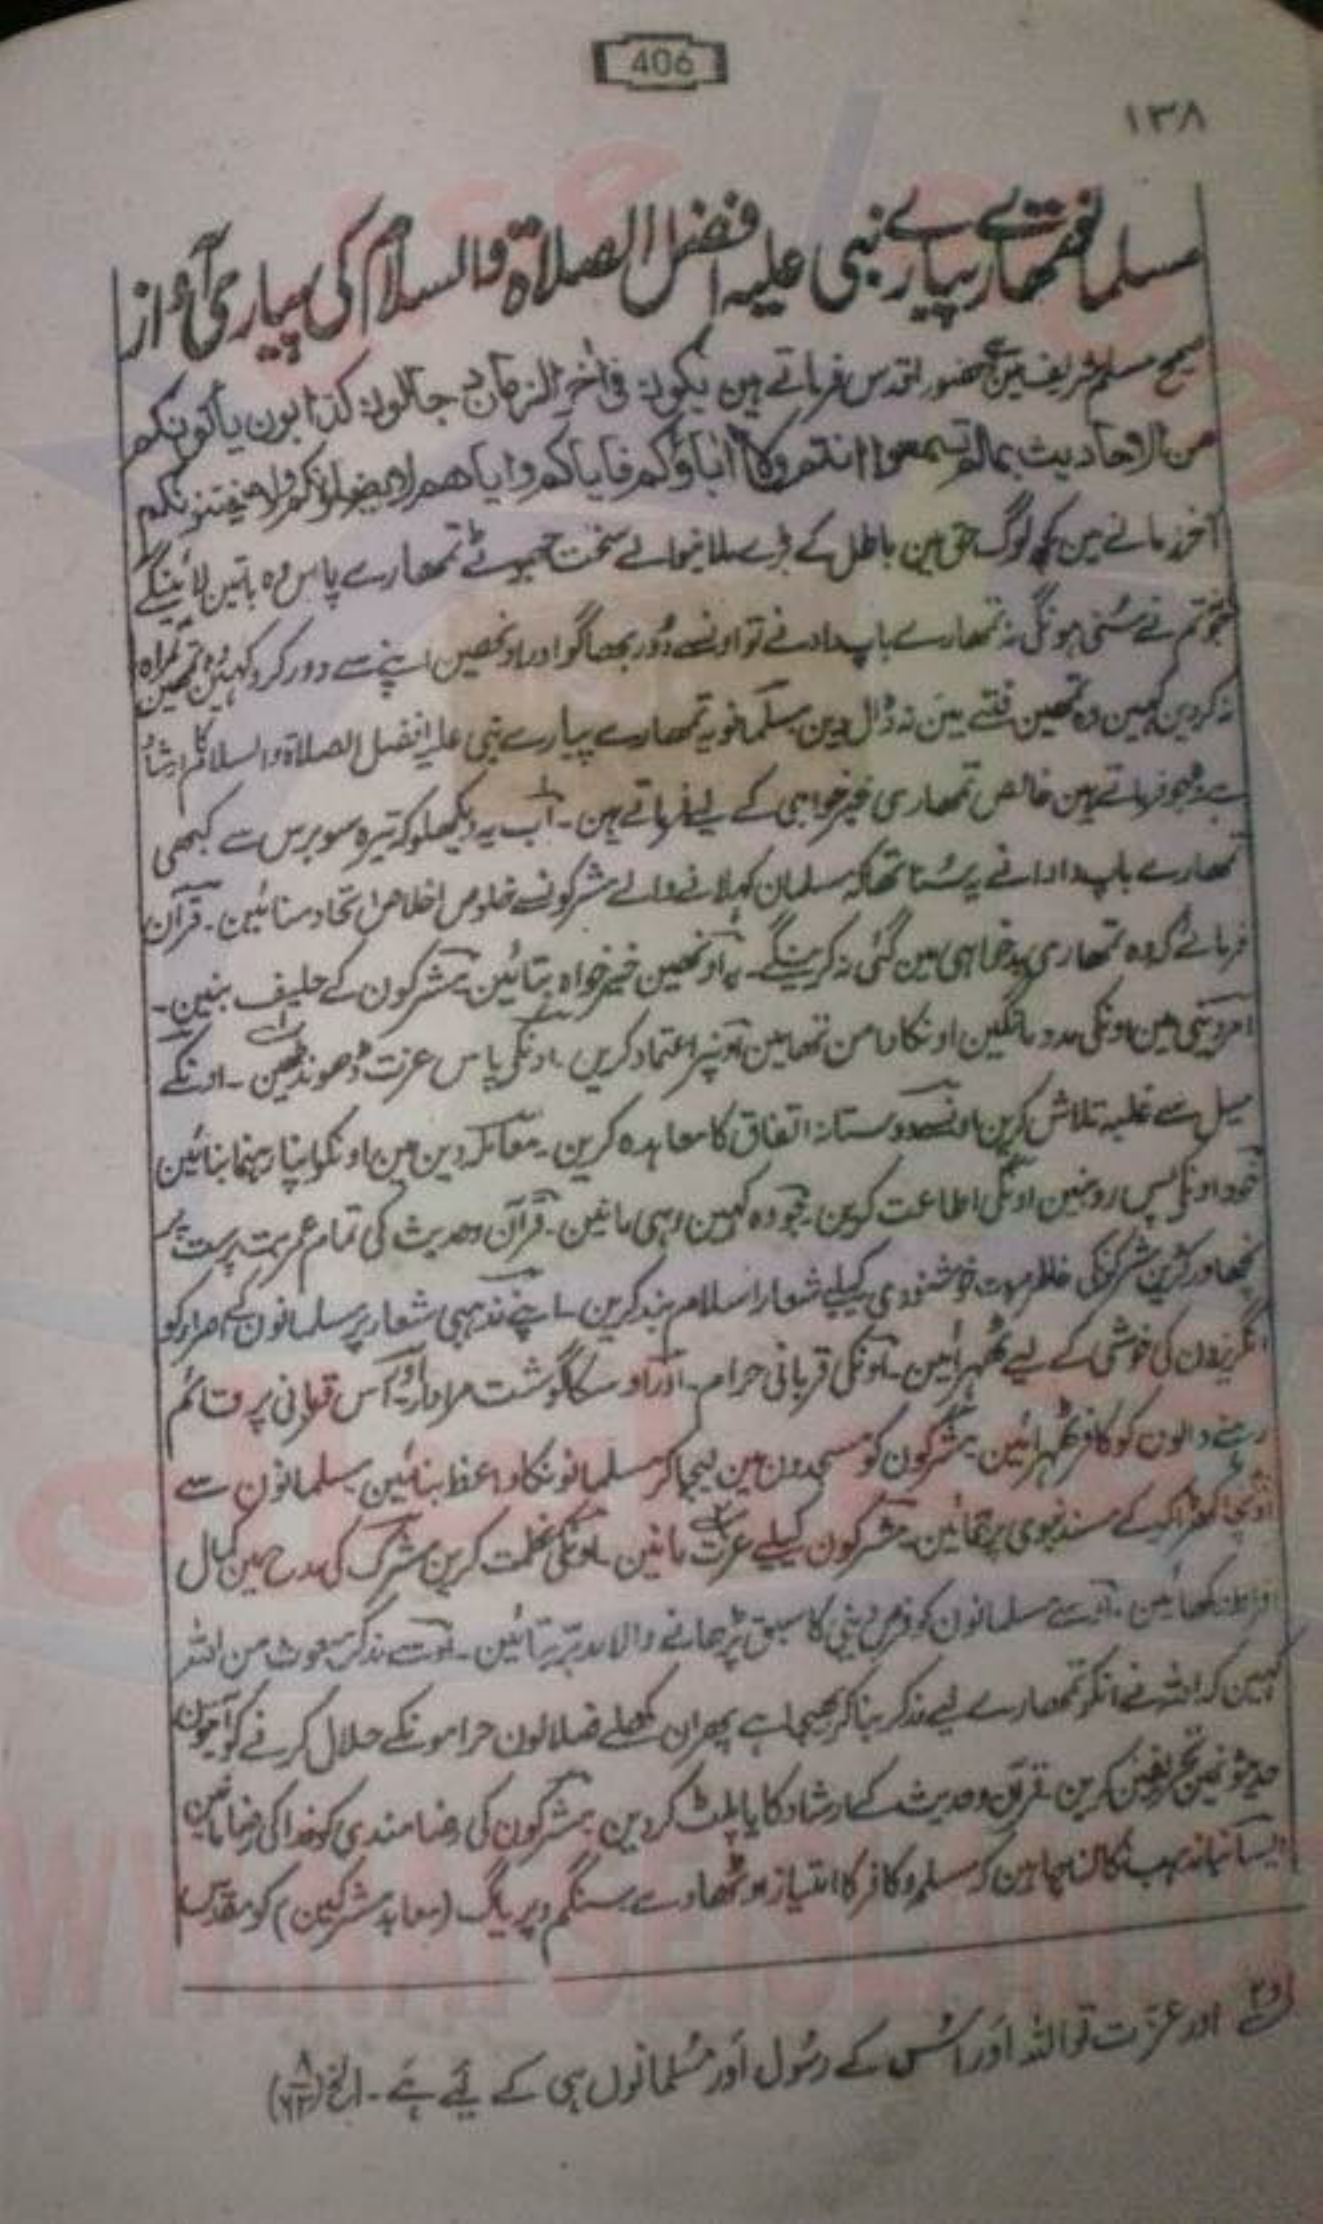 406
١٣٨
مسلمانو تمھارے پیارے نبی علیہ افضل الصلاۃ والسلام کی پیاری آواز
صحیح مسلم شریف میں حضور اقدس فرماتے ہین یکون فی اٰخر الزمان دجالون کذابون یأتونکم
من الاحادیث بمالم تسمعوا انتم ولا اٰباؤکم فایاکم وایاھم لا یضلونکم ولا یفتنونکم
آخر زمانے مین کچھ لوگ حق مین باطل کے بڑے ملانیوالے سخت جھوٹے تمھارے پاس وہ باتین لائینگے
جو تم نے سُنی ہونگی نہ تمھارے باپ دادا نے تو اونسے دُور بھاگو اور اونھین اپنے سے دور کرو کہین وہ تمھین گمراہ
نہ کردین کہین وہ تمھین فتنے مین نہ ڈال دین مسلمانو یہ تمھارے پیارے نبی علیہ افضل الصلاۃ والسلام کا ارشاد
ہے وہ جو فرماتے ہین خالص تمھاری خیر خواہی کے لیے فرماتے ہین ۔ اب یہ دیکھلو کہ تیرہ سو برس سے کبھی
تمھارے باپ دادا نے یہ سُنا تھا کہ مسلمان کہلانے والے مشرکونسے خلوص اخلاص اتحاد منائین ۔ قرآن
فرمائے کہ وہ تمھاری بدخواہی مین گئی نہ کرینگے ۔ یہ اونھین خیر خواہ بتائین ۔ مشرکون کے حلیف بنین ۔
امر دینی مین اونکی مدد مانگین اونکا دامن تھامین اونپر اعتماد کرین ۔ اونکی پاس عزت ڈھونڈھین ۔ اونکے
میل سے غلبہ تلاش کرین اونسے دوستانہ اتفاق کا معاہدہ کرین ۔ معاملہ دین مین اونکو اپنا رہنما بنائین
خود اونکے پس رو بنین اونکی اطاعت کرین ۔ جو وہ کہین وہی مانین ۔ قرآن وحدیث کی تمام عمر بت پرستی پر
نچھاور کرین مشرکونکی خوشنودی کیلیے شعار اسلام بند کرین ۔ اپنے مذہبی شعار پر مسلمانون کے اصرار کو
انگریزون کی خوشی کے لیے ٹھہرائین ۔ اونکی قربانی حرام ۔ اور اوسکا گوشت مردار ۔ اور اس قربانی پر قائم
رہنے والون کو کافر ٹھہرائین ۔ مشرکون کو مسجدون مین لیجا کر مسلمانونکا واعظ بنائین ۔ مسلمانون سے
اونچا کھڑا کرکے مسند نبوی پر جمائین ۔ مشرکون کیلیے عزت مانین ۔ اونکی عظمت کرین مشرک کی مدح مین کمال
دکھائین ۔ اوسے مسلمانون کو فرض دینی کا سبق پڑھانے والا مدبر بتائین ۔ اوسے مذکر مبعوث من اللہ
کہین کہ اللہ نے انکو تمھارے لیے مذکر بنا کر بھیجا ہے پھر ان کھلے ضلالون حرامونکے حلال کرنے کو آیتون
حدیثونمین تحریفین کرین ۔ قرآن وحدیث کے ارشاد کا یا پلٹ کردین ۔ مشرکون کی رضامندی کو خدا کی رضا مانین
ایسا نیا مذہب نکالنا چاہین کہ مسلم وکافر کا امتیاز اوٹھادے سنگم وپریاگ (معابد مشرکین) کو مقدس
اور عزّت تو اللہ اور اُس کے رسُول اور مُسلمانوں ہی کے لیے ہے ۔ الخ (۸/۶۳)